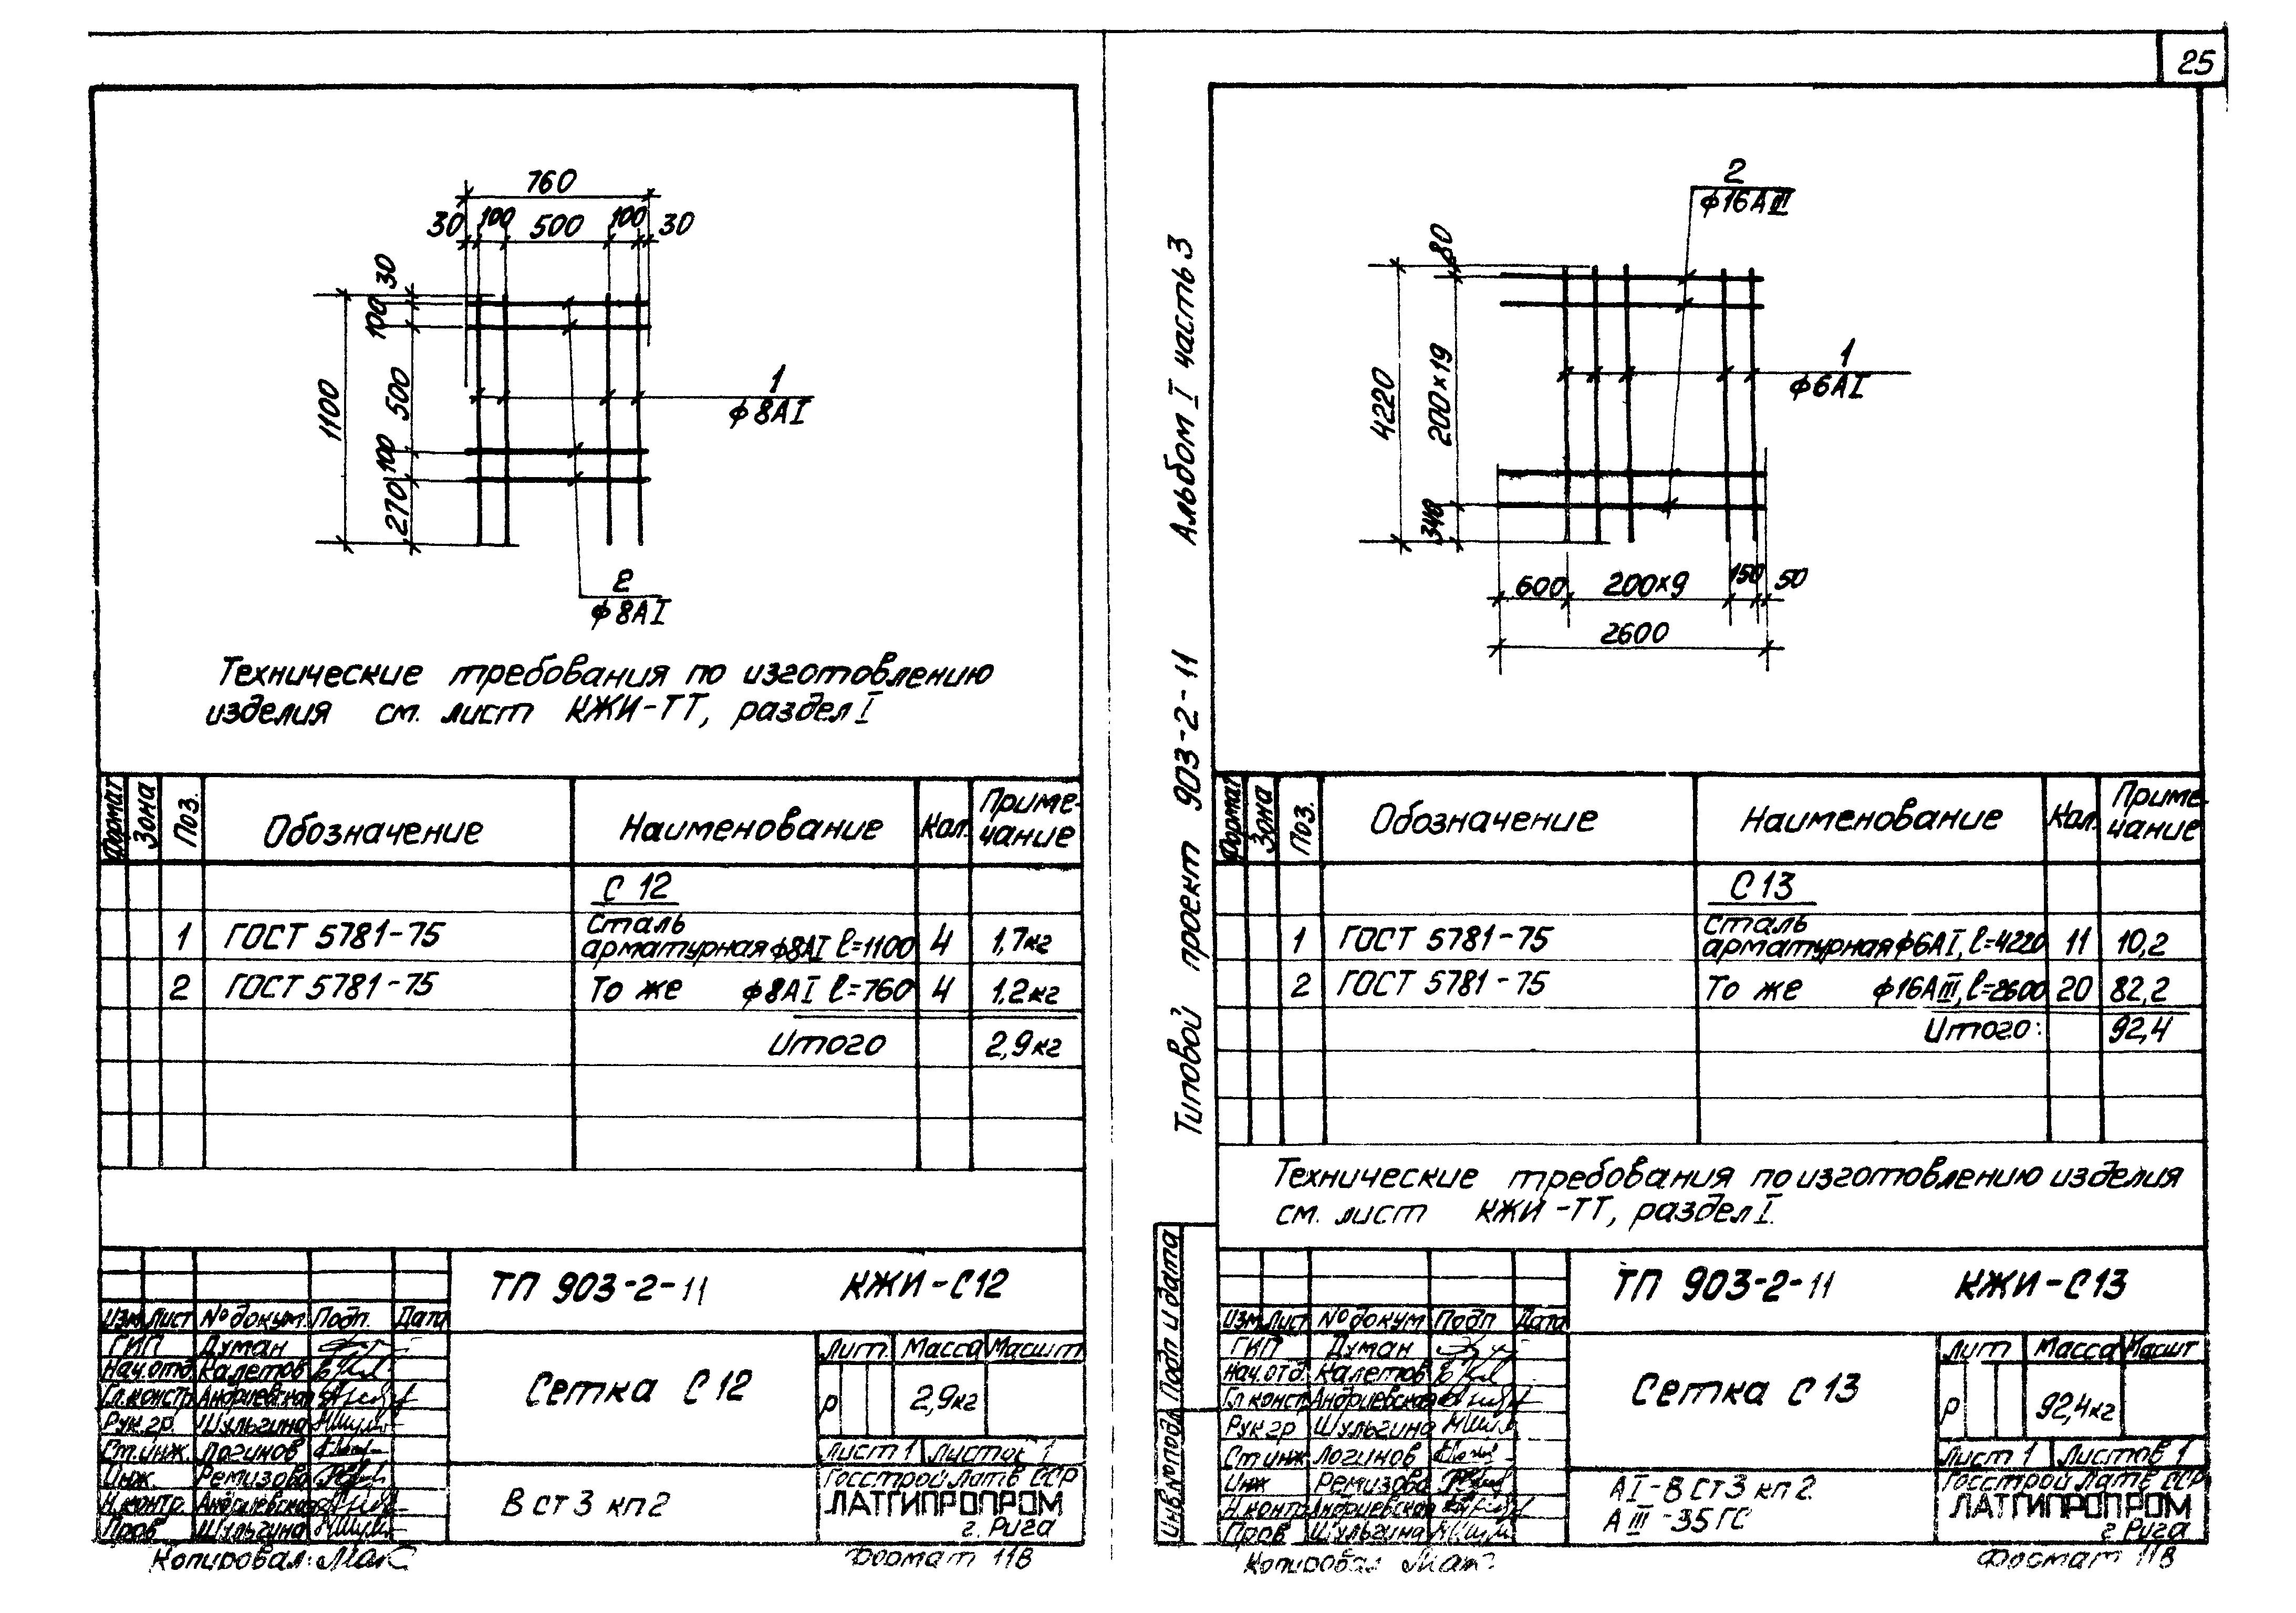 25
760
30 100 500 100 30
30
100
500
100
270
1100
1
ф8АI
2
ф8АI
Технические требования по изготовлению
изделия см. лист КЖИ-ТТ, раздел I
Формат Зона Поз. Обозначение Наименование Кол. Примечание
С 12
1 ГОСТ 5781-75 Сталь арматурная ф8АI ℓ=1100 4 1,7кг
2 ГОСТ 5781-75 То же ф8АI ℓ=760 4 1,2кг
Итого 2,9кг
ТП 903-2-11 КЖИ-С12
Изм Лист № докум. Подп. Дата
ГИП Думан
Нач.отд. Калетов
Гл.констр. Андриевская
Рук.гр. Шульгина
Ст.инж. Логинов
Инж. Ремизова
Н.контр. Андриевская
Пров Шульгина
Сетка С 12
Лит. Масса Масшт
Р 2,9кг
Лист 1 Листов 1
В ст 3 кп 2
Госстрой Латв ССР
ЛАТГИПРОПРОМ
г. Рига
Копировал: Мак
Формат 11В
Типовой проект 903-2-11 Альбом I часть 3
Инв.№подл Подп и дата
2
ф16АIII
80
200×19
340
4220
1
ф6АI
600 200×9 150 50
2600
Формат Зона Поз. Обозначение Наименование Кол. Примечание
С 13
1 ГОСТ 5781-75 Сталь арматурная ф6АI, ℓ=4220 11 10,2
2 ГОСТ 5781-75 То же ф16АIII, ℓ=2600 20 82,2
Итого: 92,4
Технические требования по изготовлению изделия
см. лист КЖИ-ТТ, раздел I.
ТП 903-2-11 КЖИ-С13
Изм Лист № докум Подп Дата
ГИП Думан
Нач.отд. Калетов
Гл конст Андриевская
Рук гр Шульгина
Ст инж Логинов
Инж Ремизова
Н.контр Андриевская
Пров Шульгина
Сетка С 13
Лит Масса Масшт
Р 92,4кг
Лист 1 Листов 1
АI-В Ст 3 кп 2
АIII-35ГС
Госстрой Латв ССР
ЛАТГИПРОПРОМ
г. Рига
Копировал Мак
Формат 11В